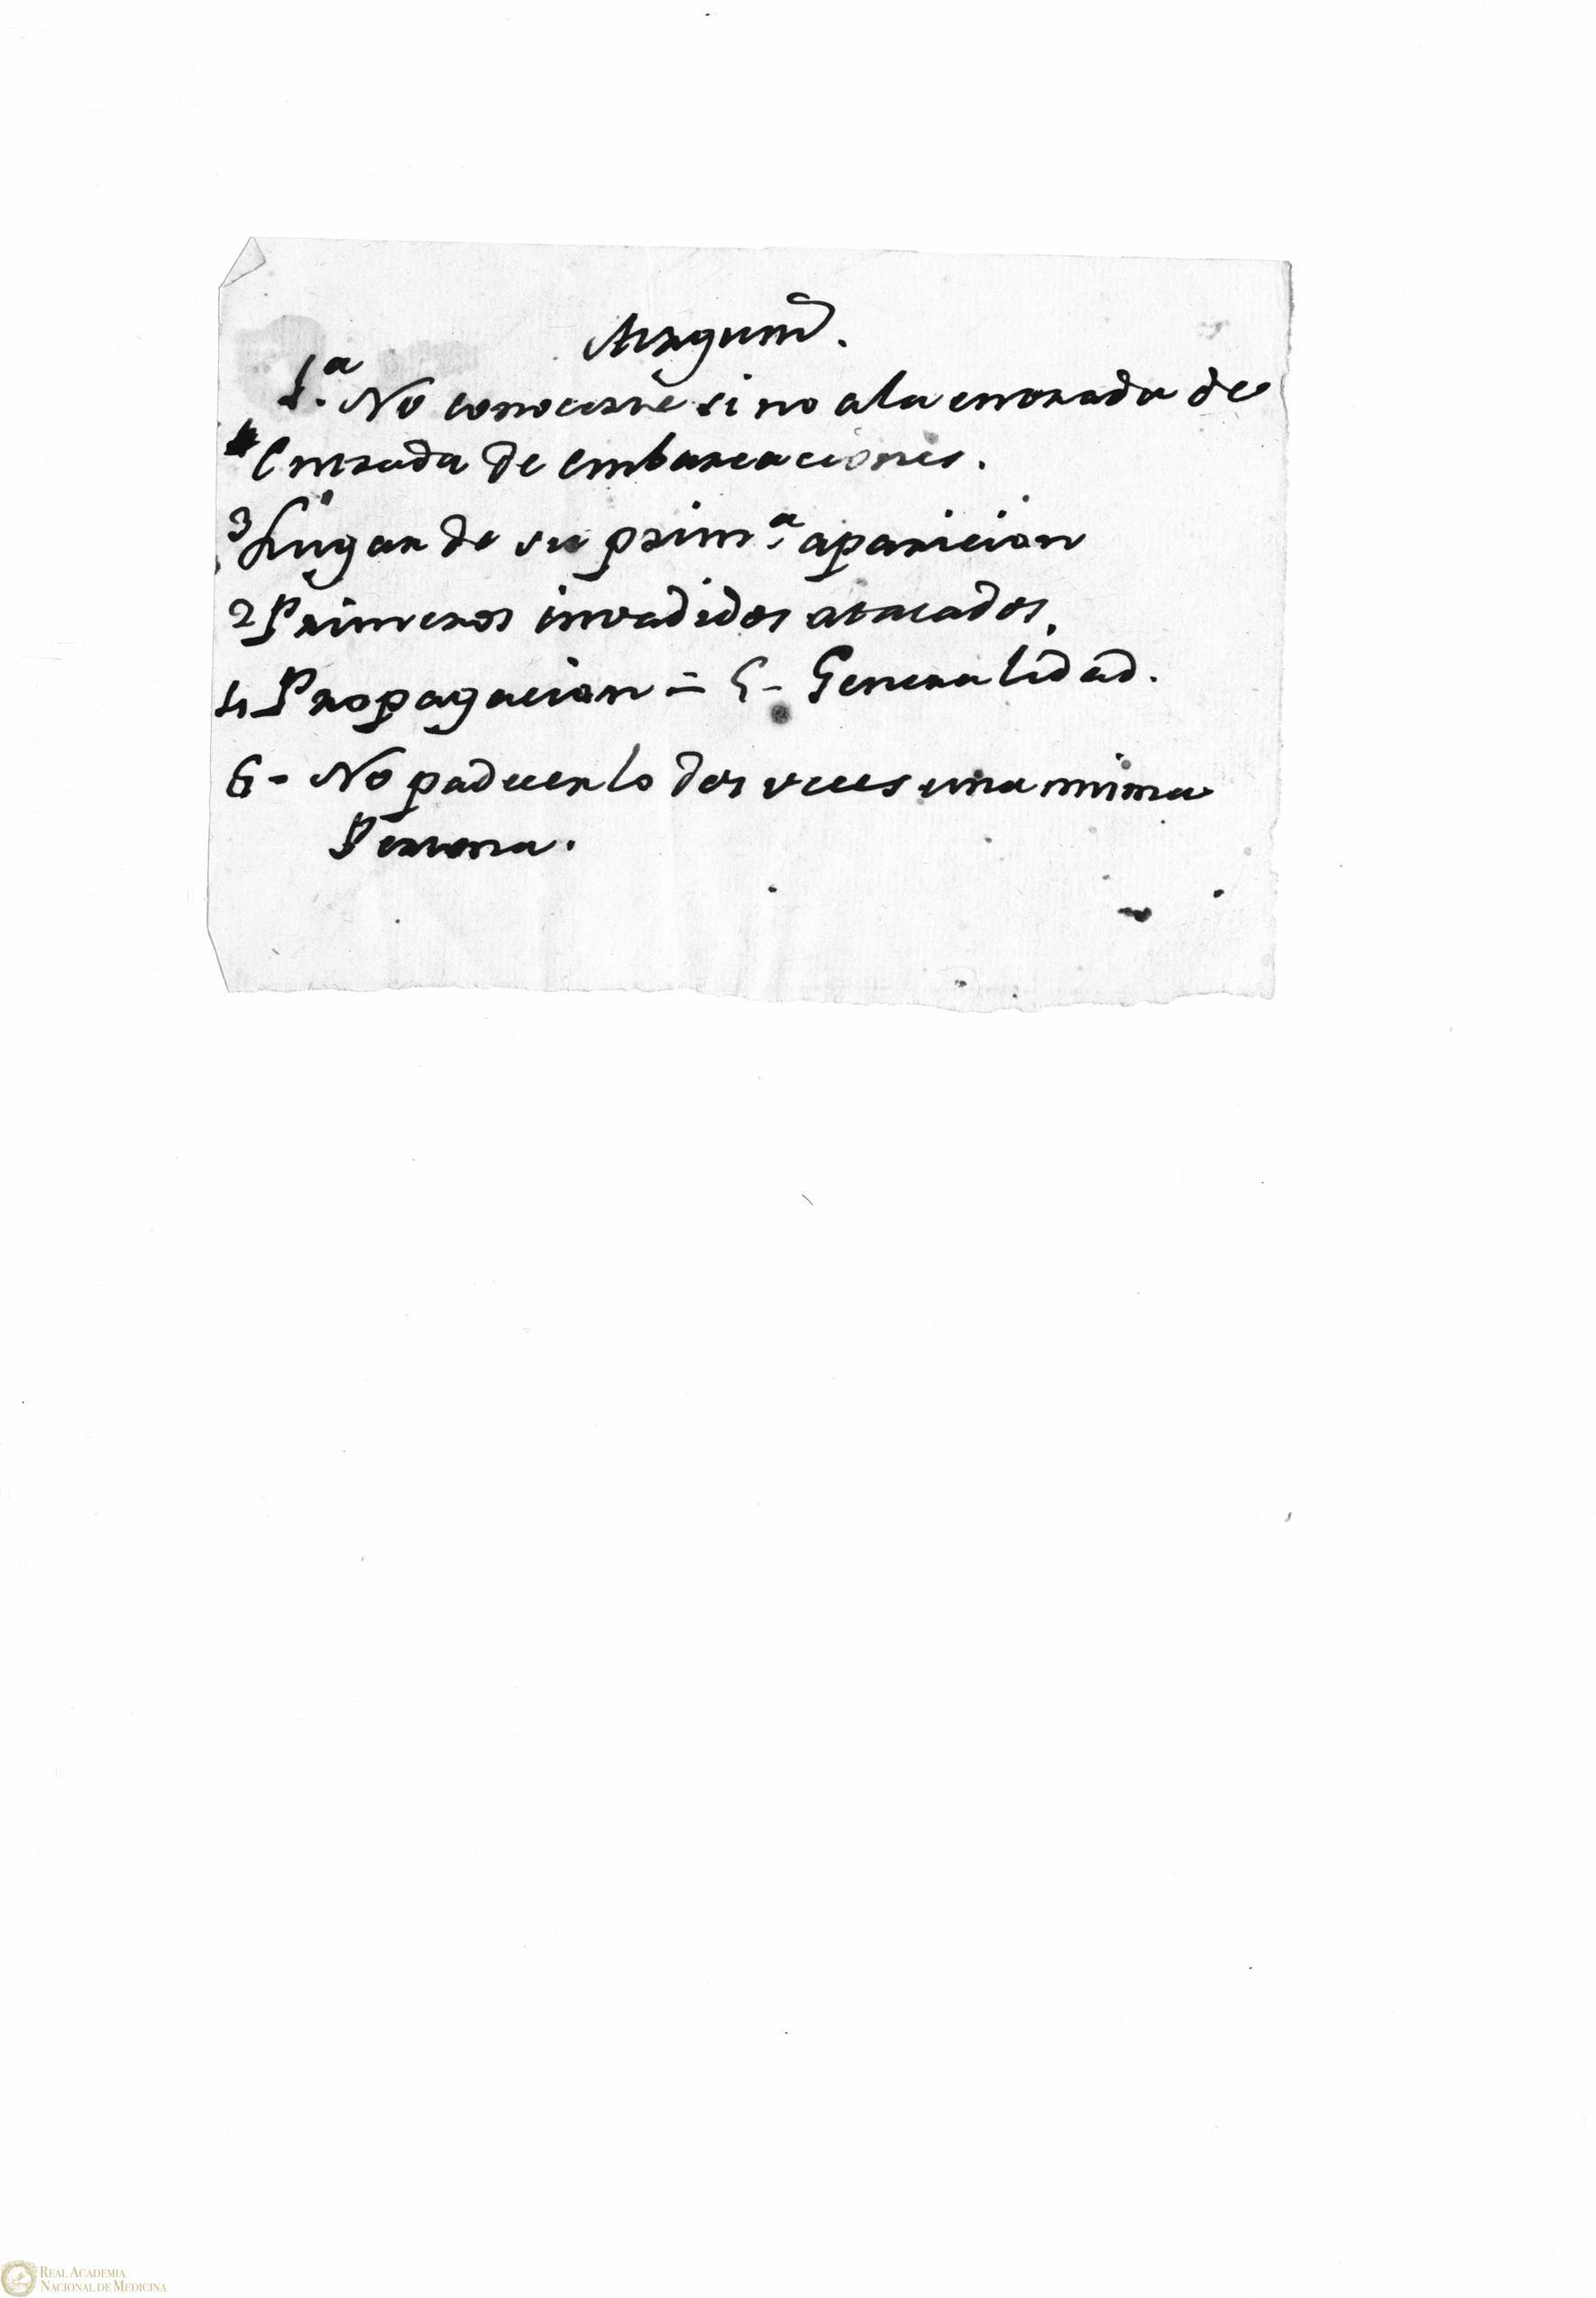 Argum.
1.a No conocerse si no ala entrada de
Entrada de embarcaciones.
3 Lugar de su prim.a aparicion
2 Primeros invadidos atacados.
4 Propagacion = 5 - Generalidad.
6 - No padecerlo dos veces una misma
Persona.
REAL ACADEMIA
NACIONAL DE MEDICINA